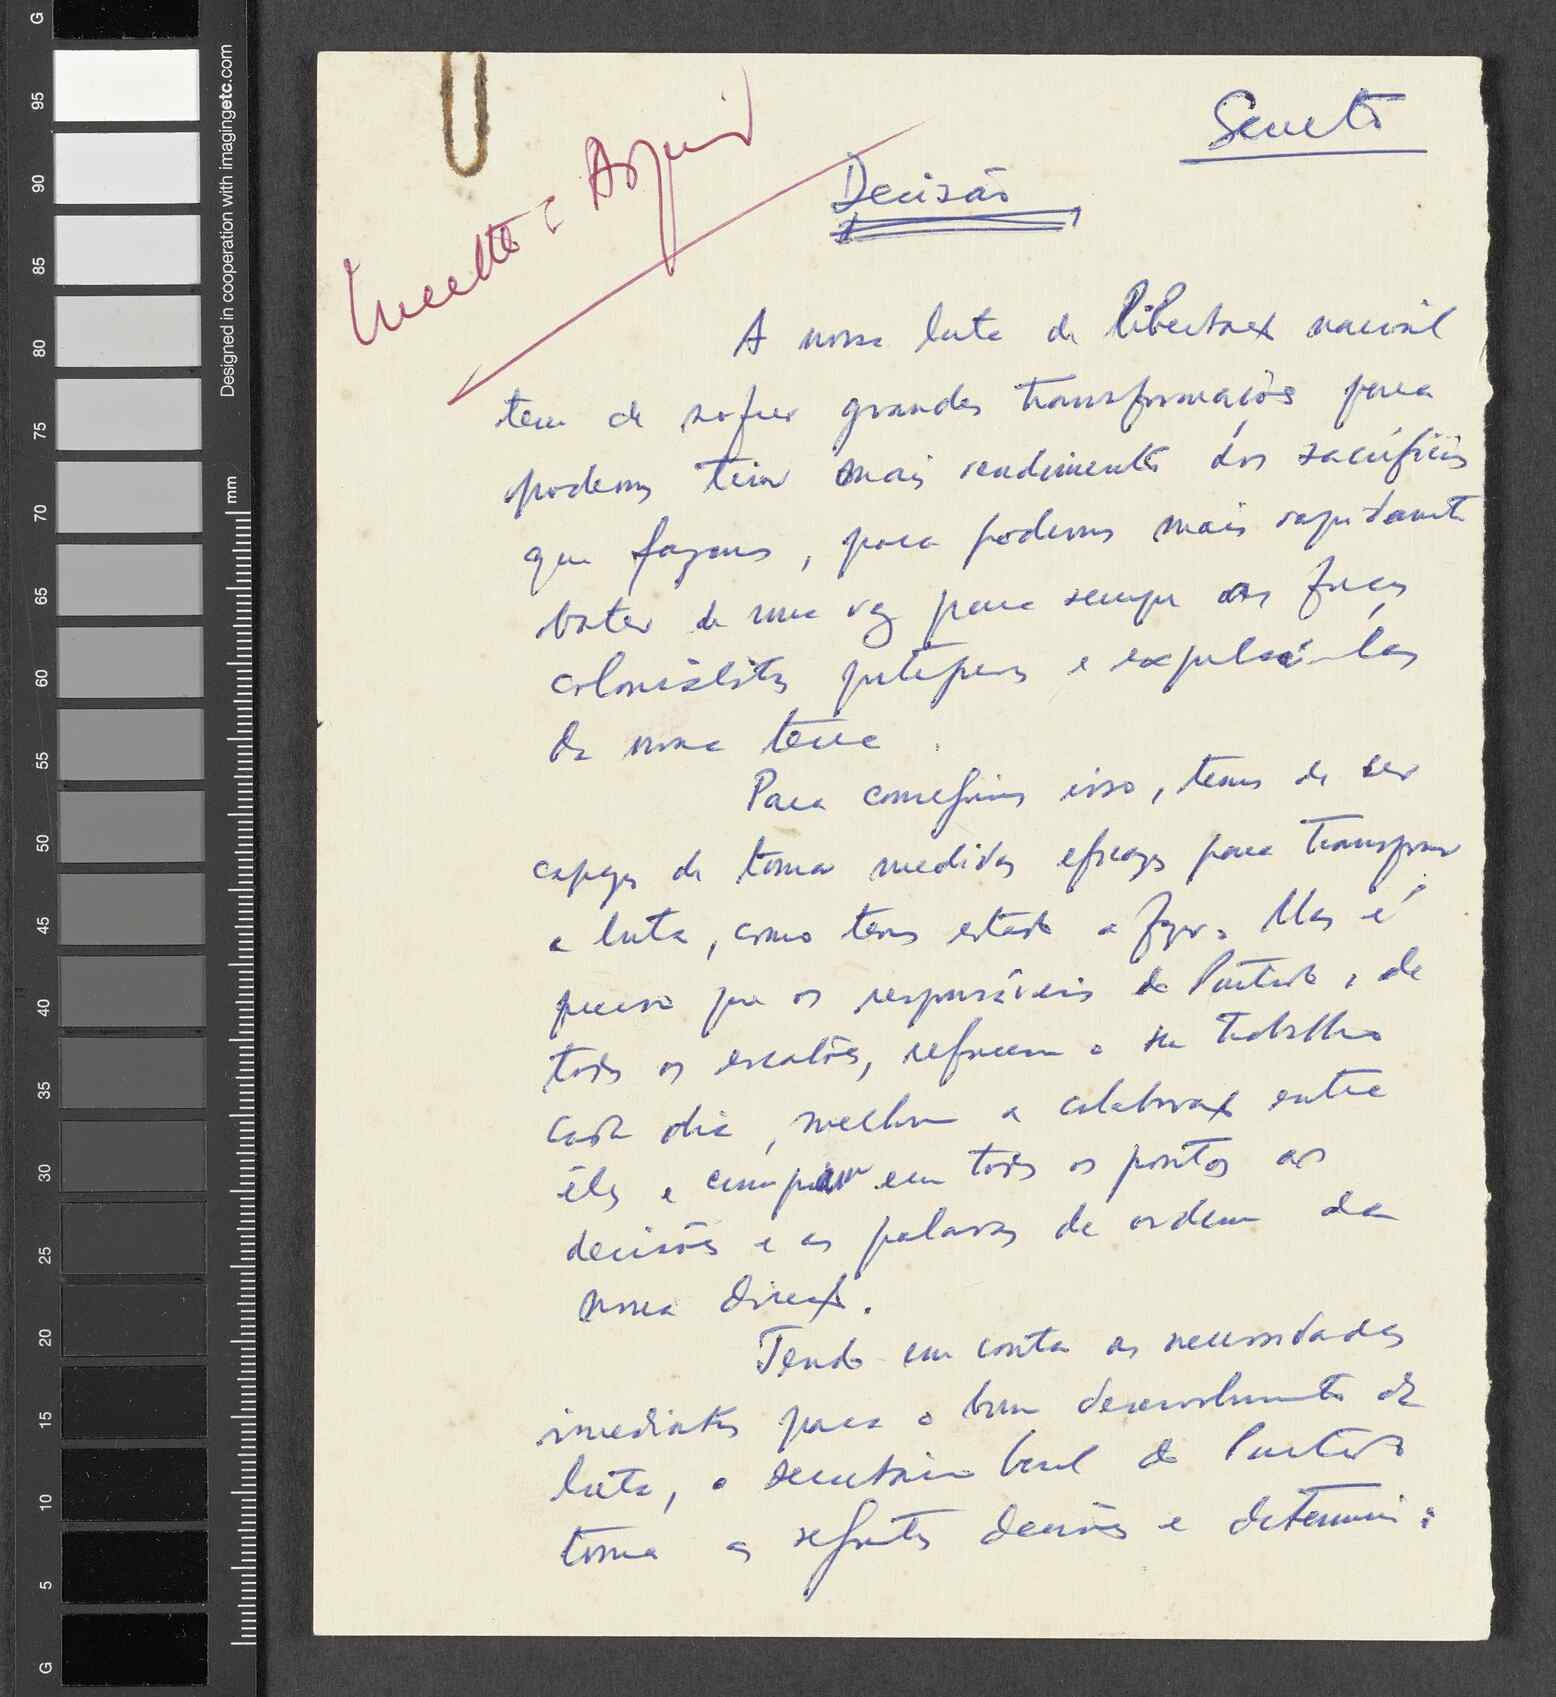 Secreto
Decisão
A nossa luta de libertação nacional
tem de sofrer grandes transformações para
podermos tirar mais rendimento dos sacrifícios
que fazemos, para podermos mais rapidamente
bater de uma vez para sempre as forças
colonialistas portuguesas e expulsá-las
da nossa terra.
Para conseguirmos isso, temos de ser
capazes de tomar medidas eficazes para transformar
a luta, como temos estado a fazer. Mas é
preciso que os responsáveis do Partido, de
todos os escalões, reforcem o seu trabalho
cada dia, melhorem a colaboração entre
êles e cumpram em todos os pontos as
decisões e as palavras de ordem da
nossa direcção.
Tendo em conta as necessidades
imediatas para o bom desenvolvimento da
luta, o Secretário Geral do Partido
toma as seguintes decisões e determina:
G
95
90
85
80
75
70
65
60
55
50
45
40
35
30
25
20
15
10
5
G
Designed in cooperation with imagingetc.com
mm